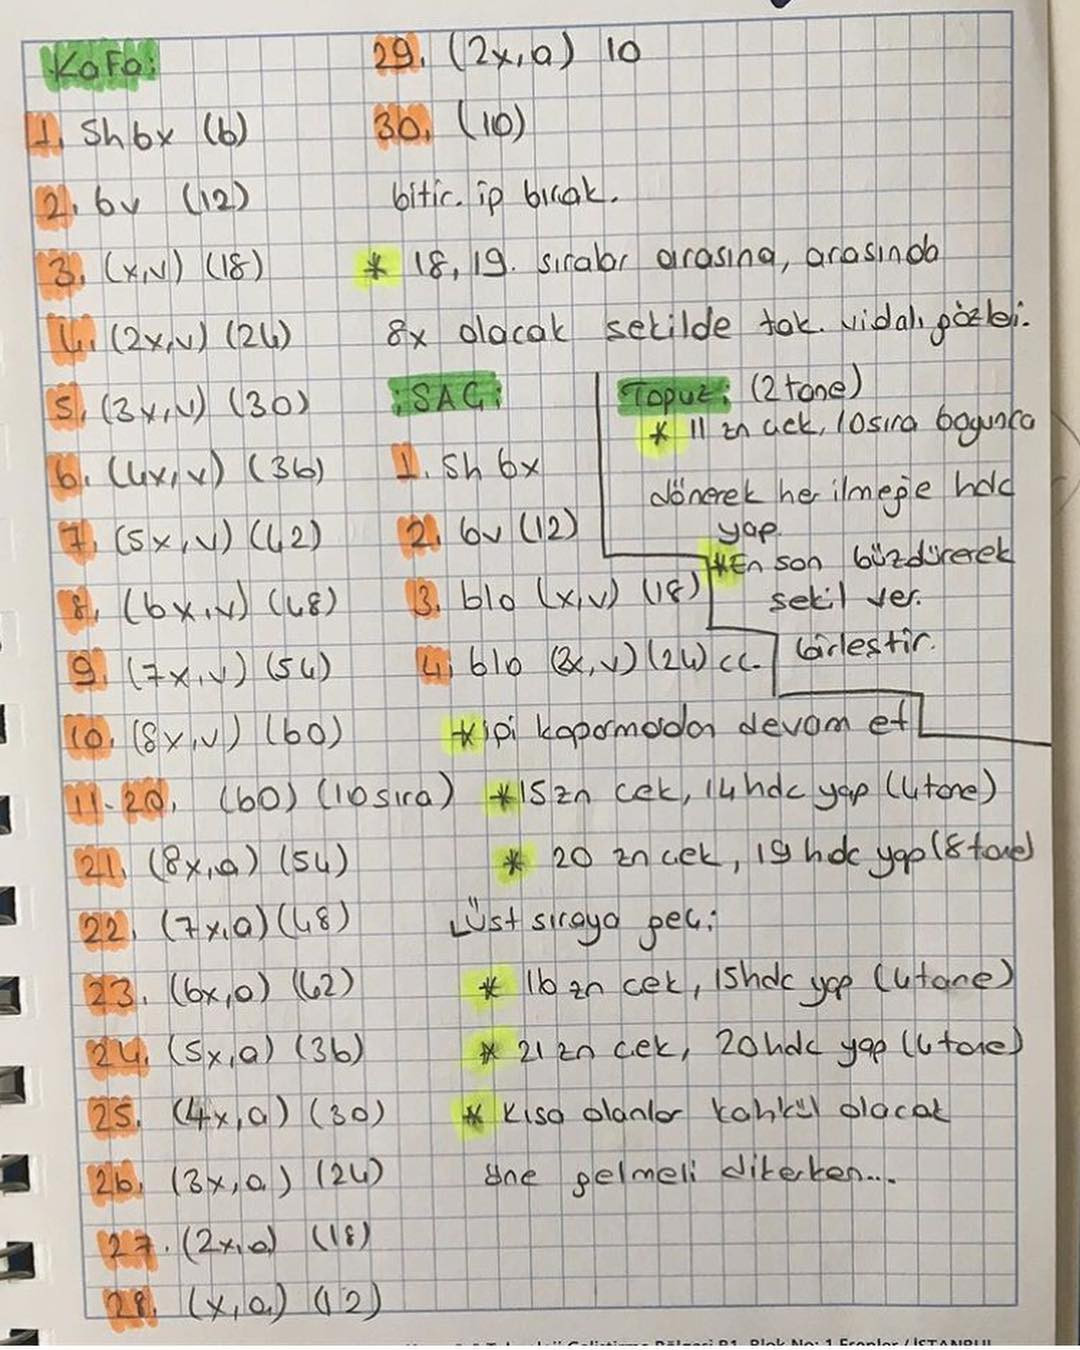 Kafa:
1. Sh 6x (6)
2. 6v (12)
3. (x,v) (18)
4. (2x,v) (24)
5. (3x,v) (30)
6. (4x,v) (36)
7. (5x,v) (42)
8. (6x,v) (48)
9. (7x,v) (54)
10. (8x,v) (60)
11-20. (60) (10 sıra)
21. (8x,a) (54)
22. (7x,a) (48)
23. (6x,a) (42)
24. (5x,a) (36)
25. (4x,a) (30)
26. (3x,a) (24)
27. (2x,a) (18)
28. (x,a) (12)
29. (2x,a) 10
30. (10)
bitir. ip bırak.
* 18, 19. sıralar arasına, arasında
8x olacak şekilde tak. vidalı gözleri.
:SAÇ:
1. Sh 6x
2. 6v (12)
3. blo (x,v) (18)
4. blo (2x,v) (24) cc.
* ipi koparmadan devam et
* 15 zn çek, 14 hdc yap (4 tane)
* 20 zn çek, 19 hdc yap (8 tane)
Üst sıraya geç:
* 16 zn çek, 15hdc yap (4 tane)
* 21 zn çek, 20 hdc yap (4 tane)
* Kısa olanlar kahkül olacak
öne gelmeli dikerken...
Topuz: (2 tane)
* 11 zn çek, 10 sıra boyunca
dönerek her ilmeğe hdc
yap.
* En son büzdürerek
şekil ver.
birleştir.